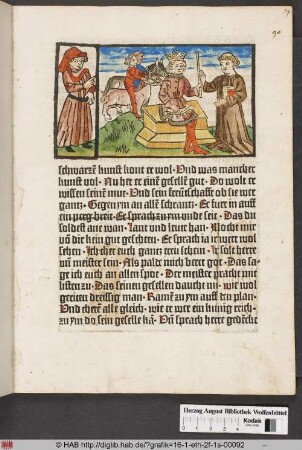 90
schwarczē kunst kont er wol · Vnd was mancher
kunst vol · Nu het er einē gesellē gut · Do wolt er
wissen seinē mut · Vnd sein freüntschafft ob sie wer
gantz · Gegen ym an allē schrantz · Er furt in auff
ein perg breit · Er sprach zu ym vnde seit · Das du
soldest ane wan · Laut vnd leute han · Noch mir
von dir kein gut geschehen · Er sprach ia ir wert wol
sehen · Ich thet euch gantz treu schein · Ir solt herre
mein meister sein · Als pald mich der
ge ich euch an allen spot · Der meister sprach mit
listen zu · Das seinen gesellen dauchte nu · wie wol
geriten dreissig man · Kamē zu ym auff dē plan ·
Vnd thetē alle gleich · wie er ein kunig reich ·
zu ym do sein geselle kā · Vñ sprach herre gedēckt
Herzog August Bibliothek Wolfenbüttel
Kodak
© HAB http://diglib.hab.de/?grafik=16-1-eth-2f-1s-00092